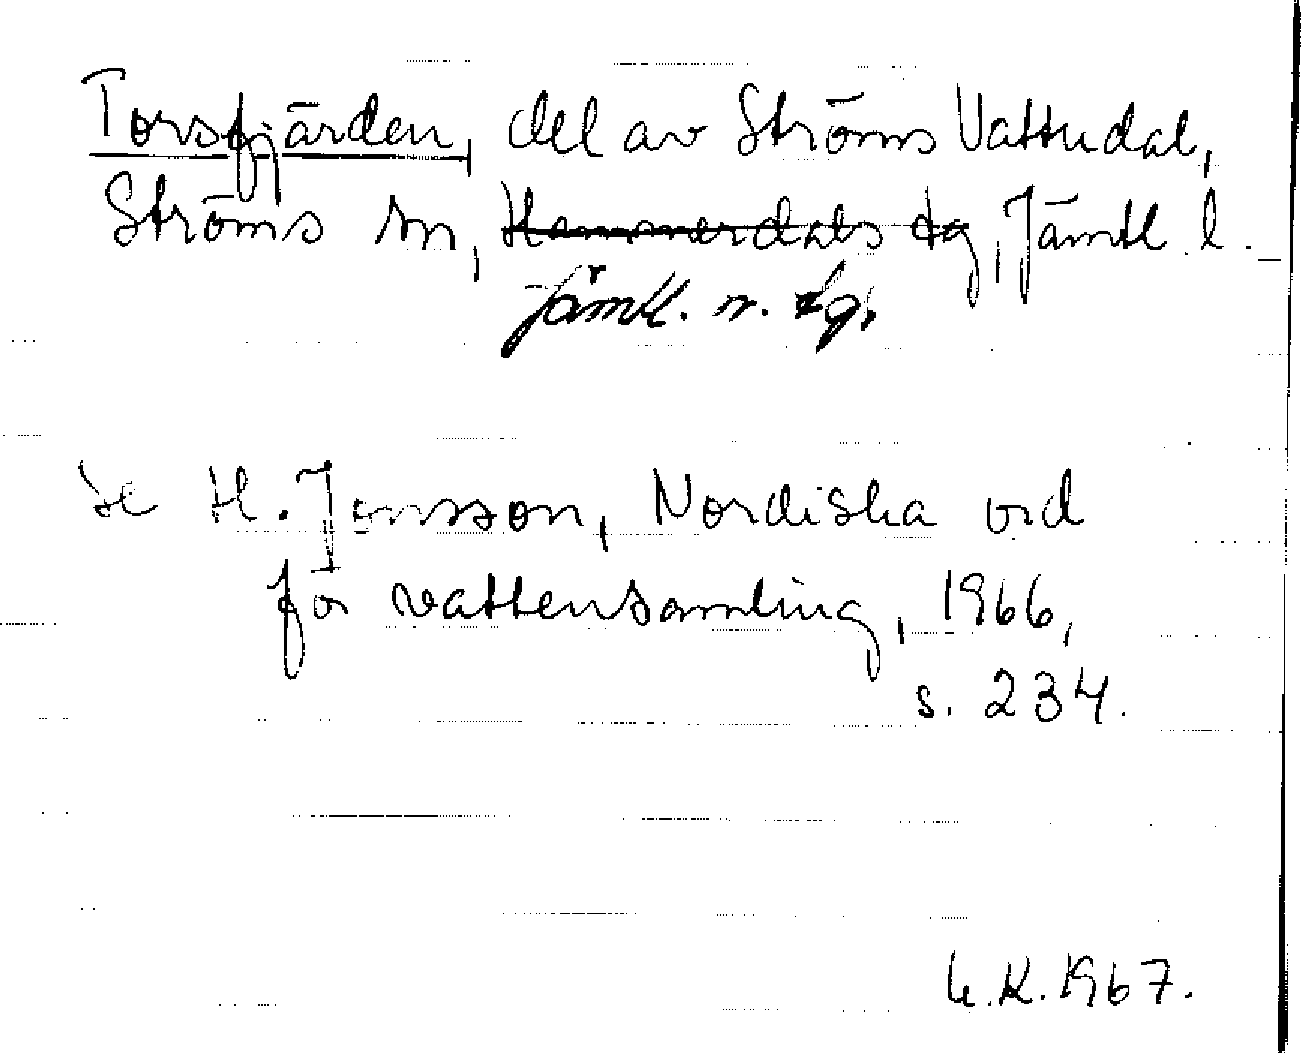 Torsfjärden, del av Ströms Vattudal,
Ströms sn, Hammerdals tg, Jämtl. l.
Jämtl. n. tg.
Se H. Jonsson, Nordiska ord
för vattensamling, 1966,
s. 234.
K. 1967.